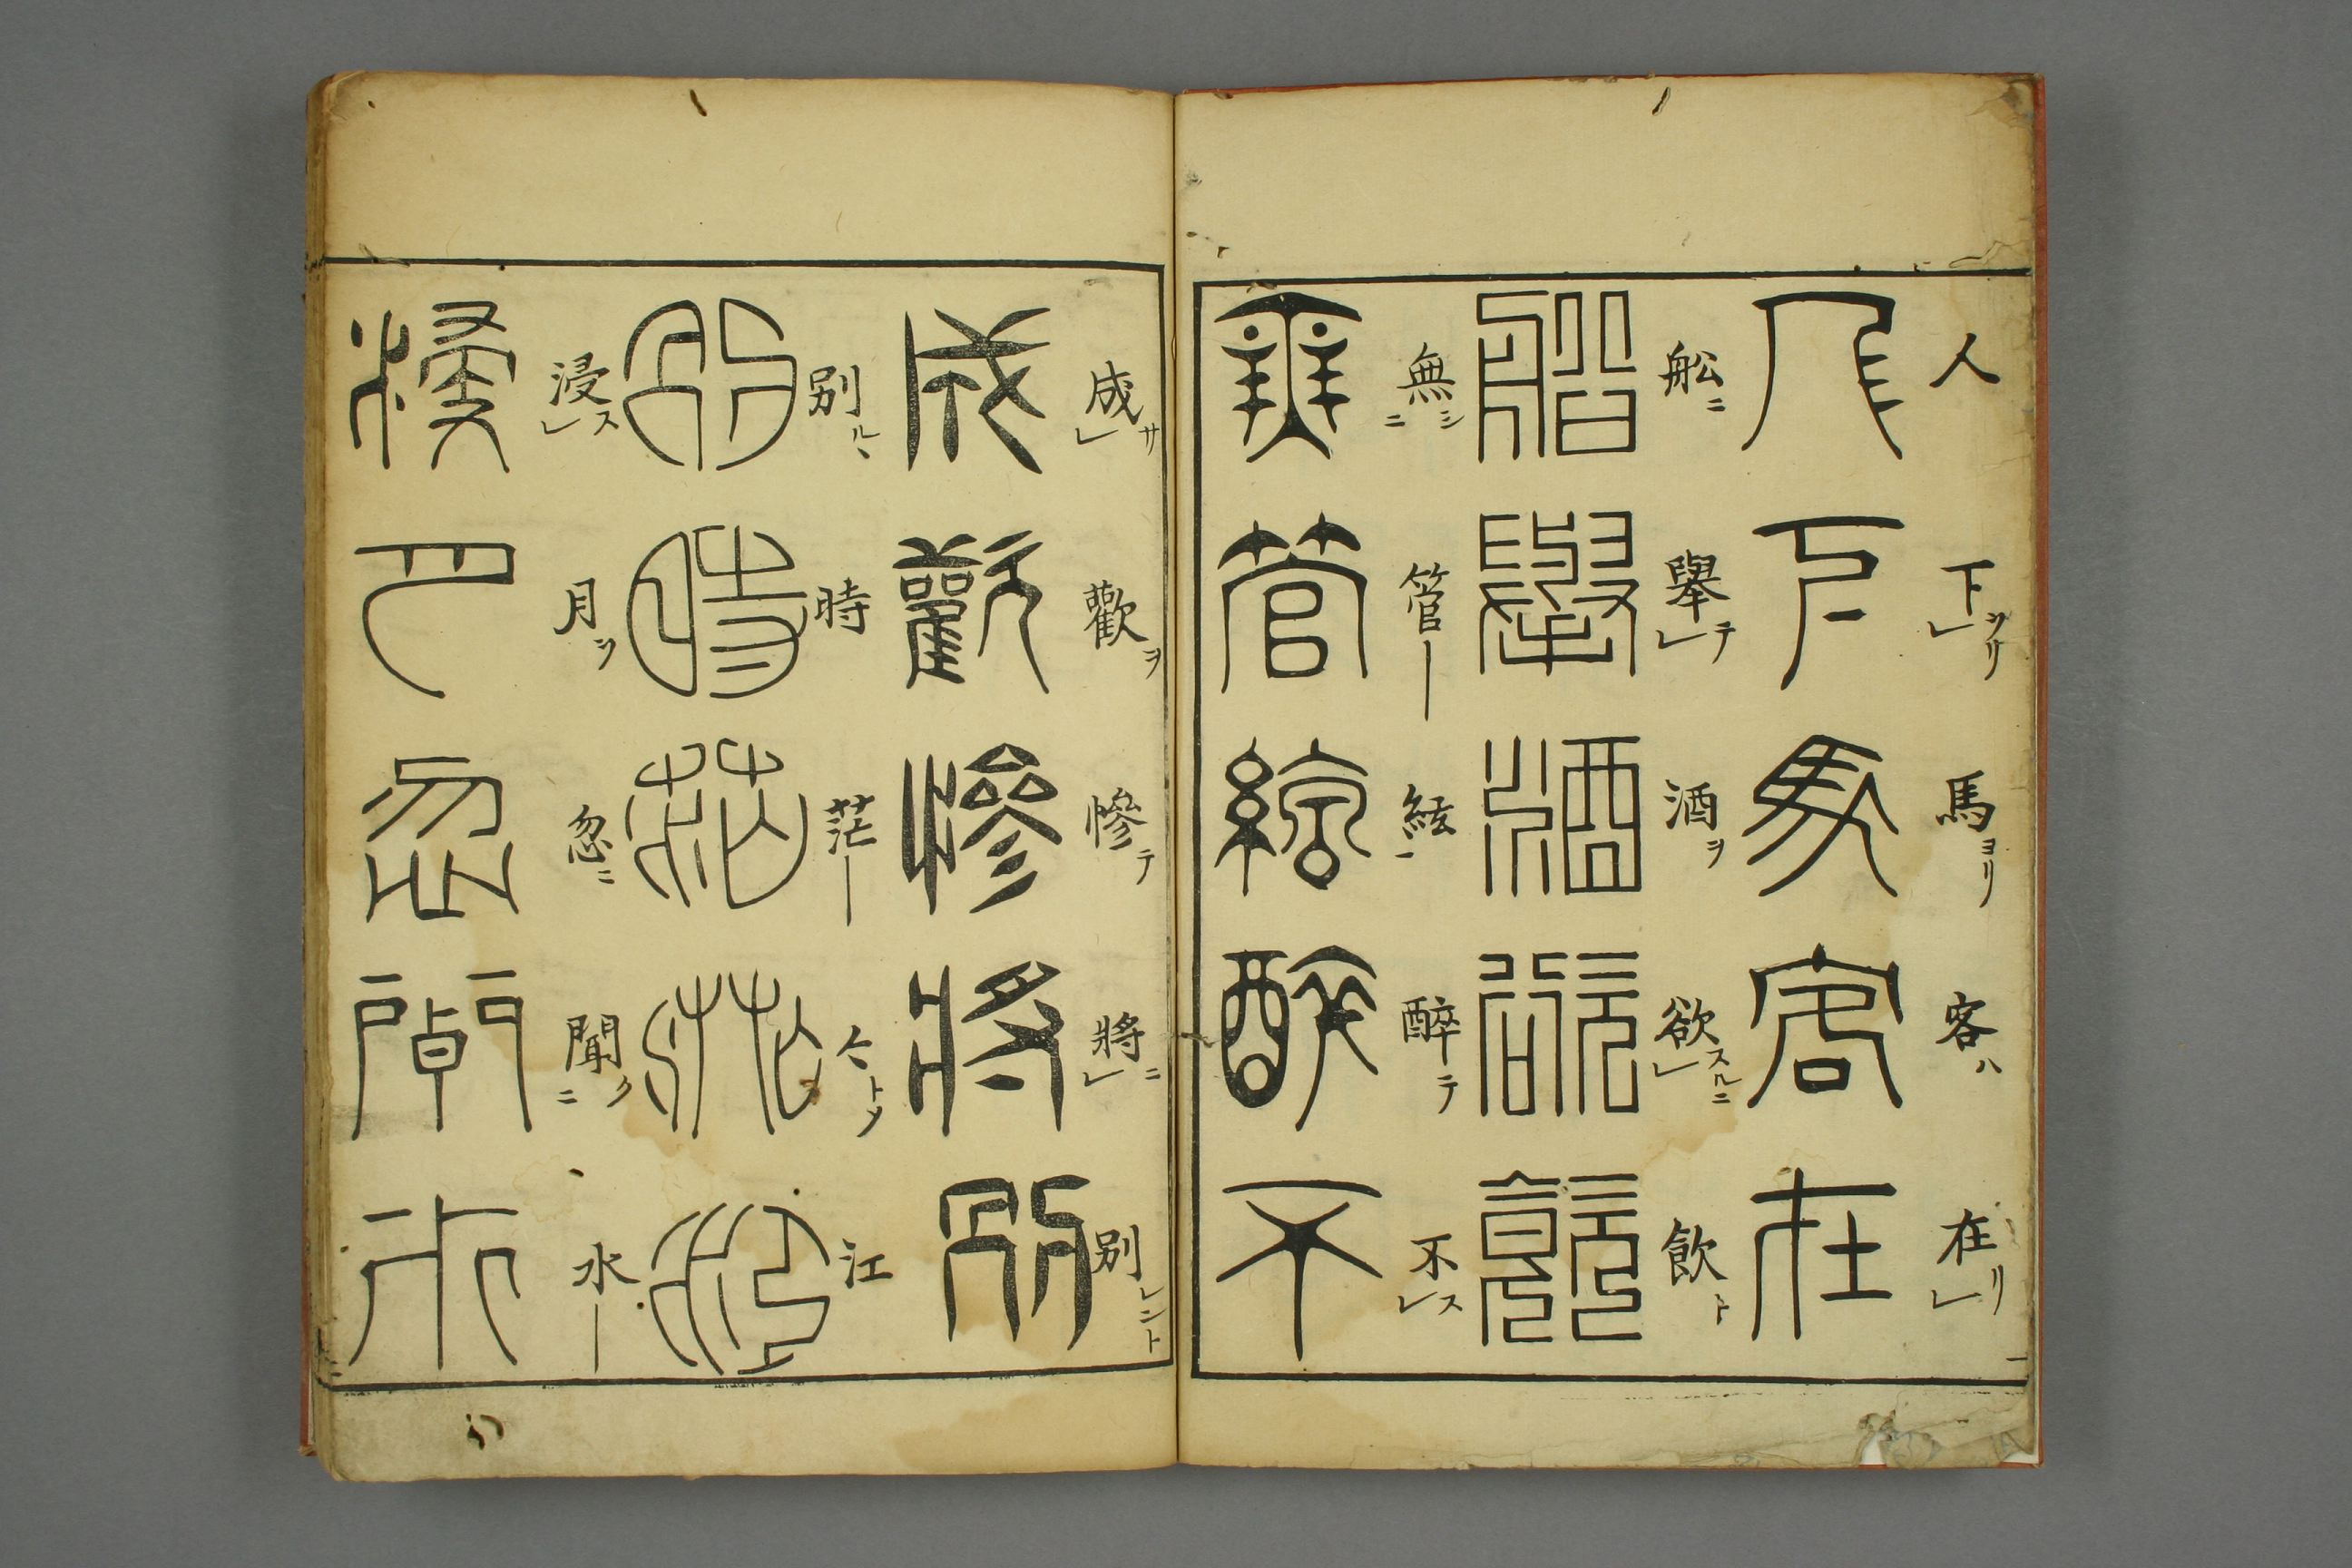 人 下ツリレ 馬ヨリ 客ハ 在リレ
人下馬客在
舩ニ 舉テレ 酒ヲ 欲スルニレ 飲ト
船舉酒欲飲
無シニ 管| 絃一 醉テ 不スレ
無管絃醉不
一
成サレ 歡ヲ 慘テ 將ニレ 別レント
成歡慘將別
別ルヽ 時 茫| 〻トメ 江
別時茫茫江
浸スレ 月ヲ 忽ニ 聞クニ 水|
浸月忽聞水
二